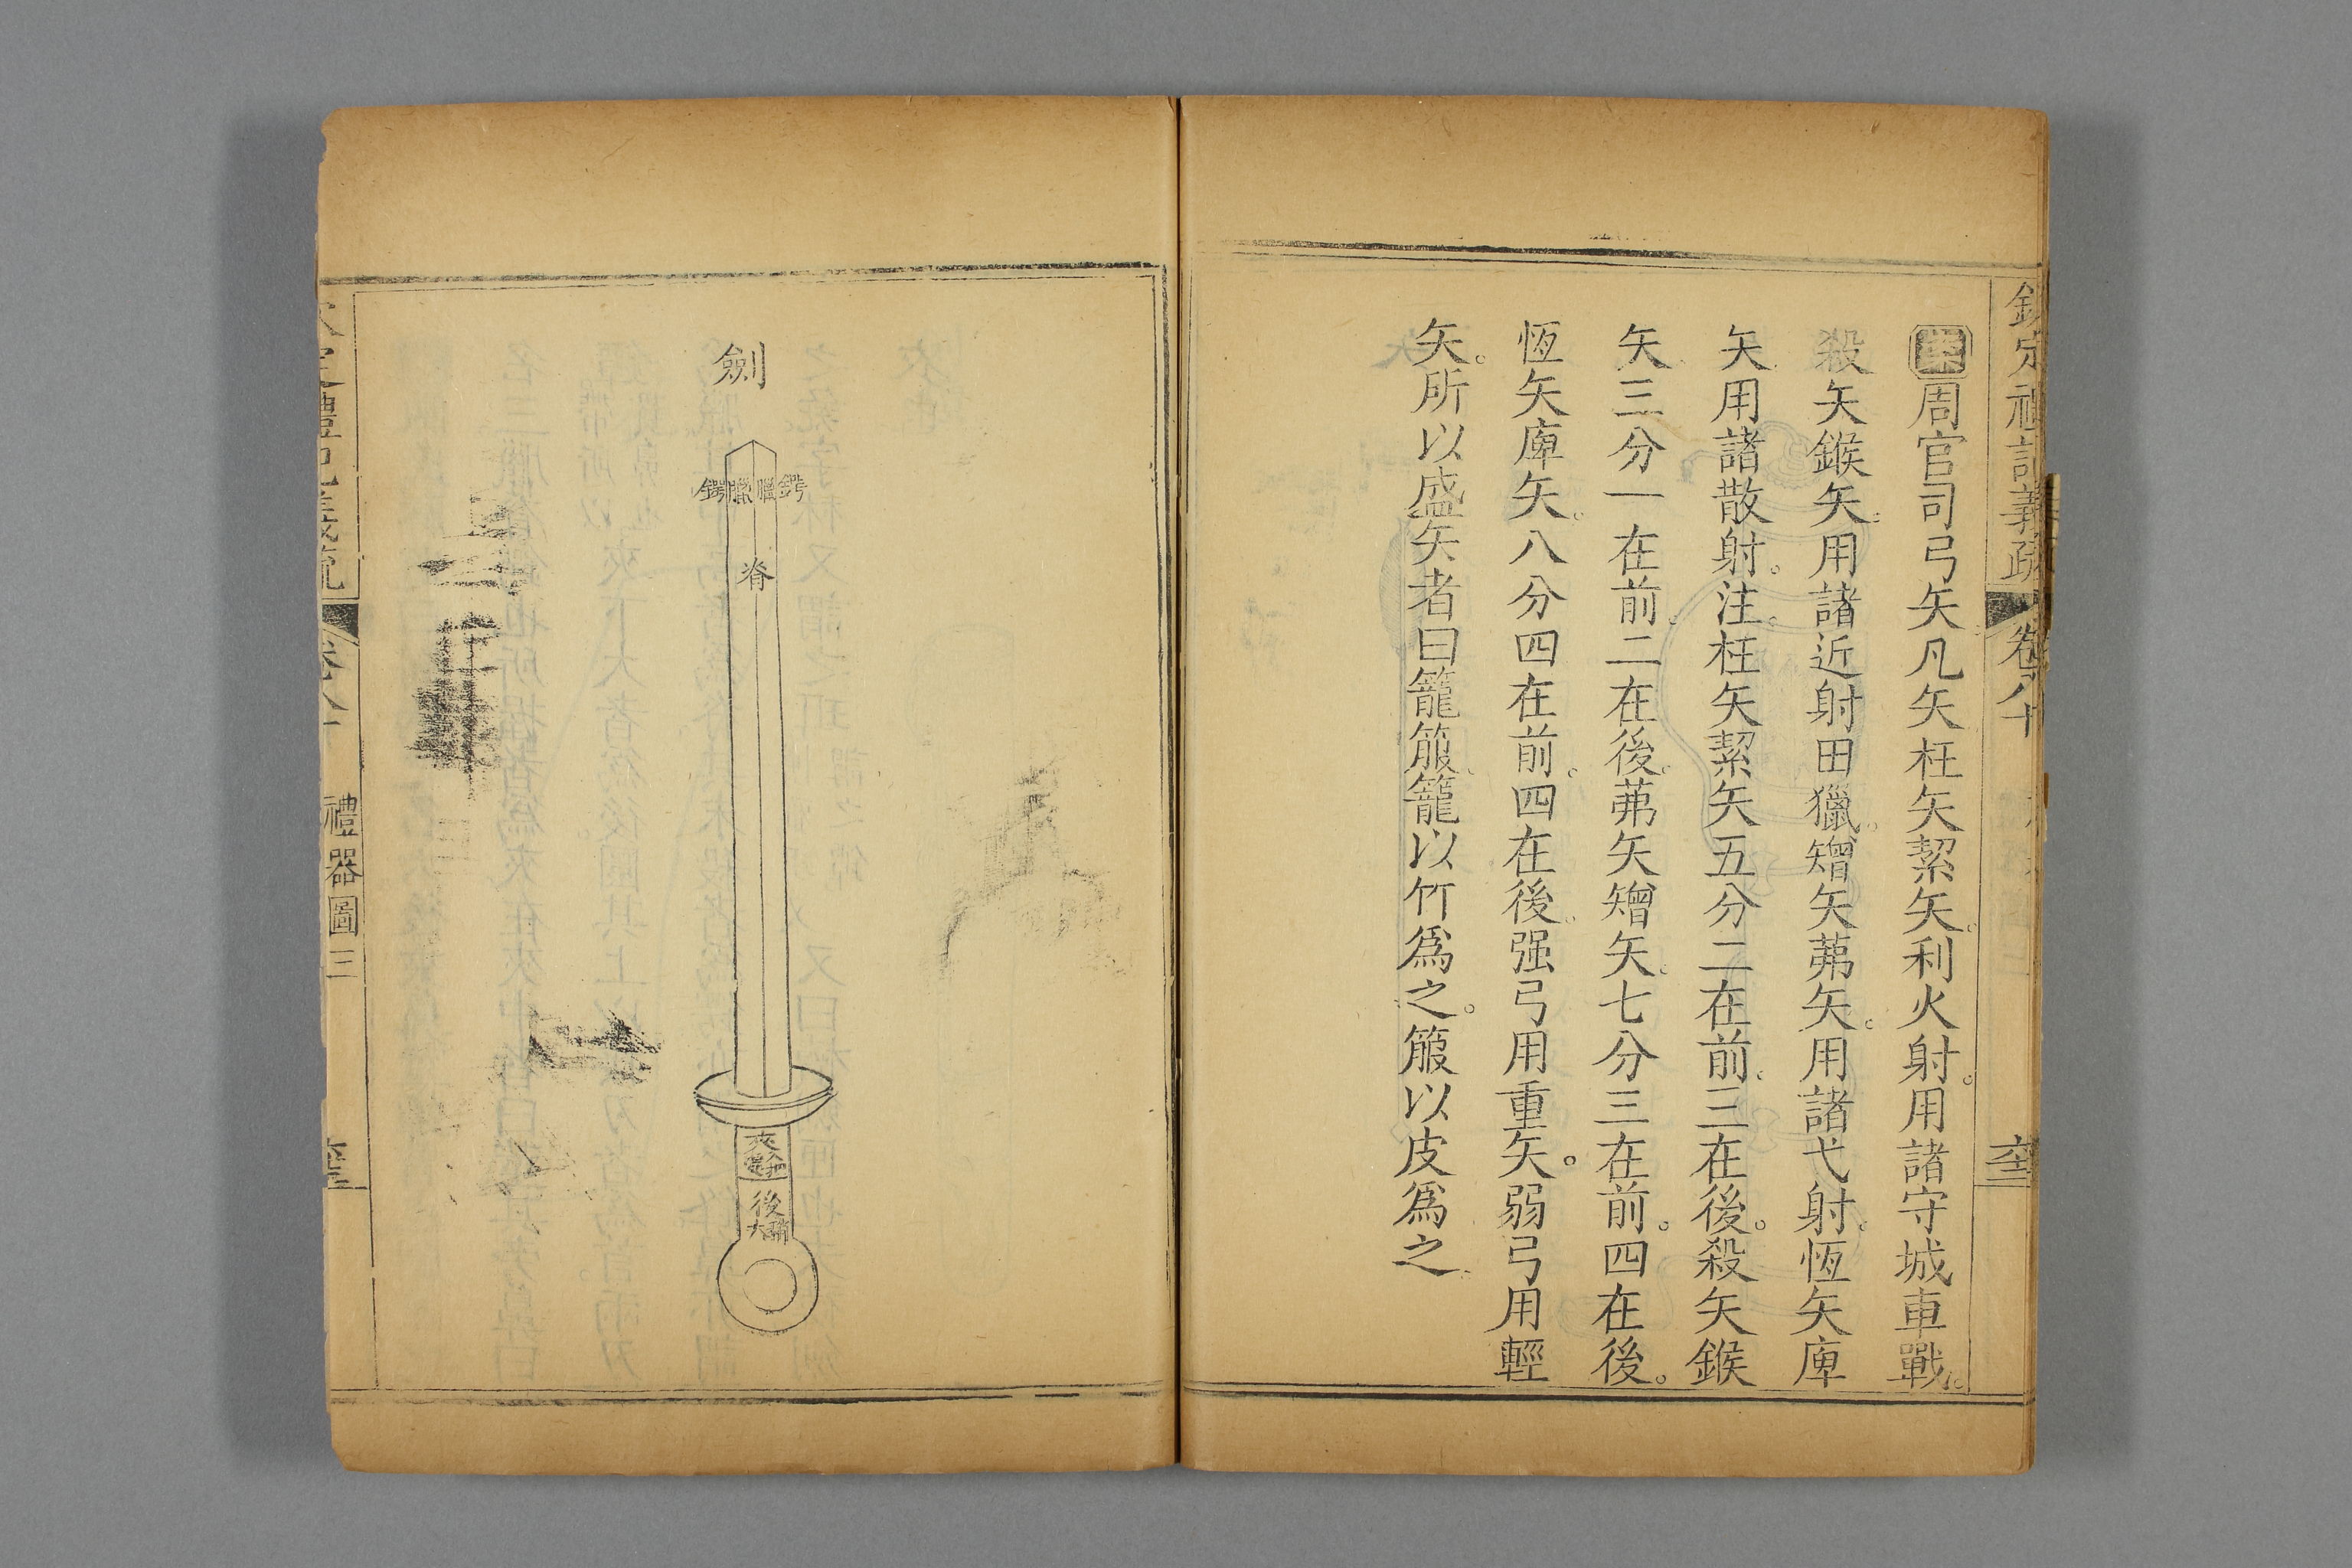 欽定禮記義疏 卷八十
案周官司弓矢凡矢枉矢絜矢。利火射。用諸守城車戰。
殺矢鍭矢。用諸近射田獵。矰矢茀矢。用諸弋射。恆矢庳
矢用諸散射。注。枉矢絜矢五分二在前。三在後。殺矢鍭
矢三分一在前。二在後。茀矢矰矢。七分三在前。四在後。
恆矢庳矢。八分四在前。四在後。强弓用重矢。弱弓用輕
矢。所以盛矢者曰籠箙。籠以竹爲之。箙以皮爲之
劍
鍔臘臘鍔
脊
夾
後
禮器圖三